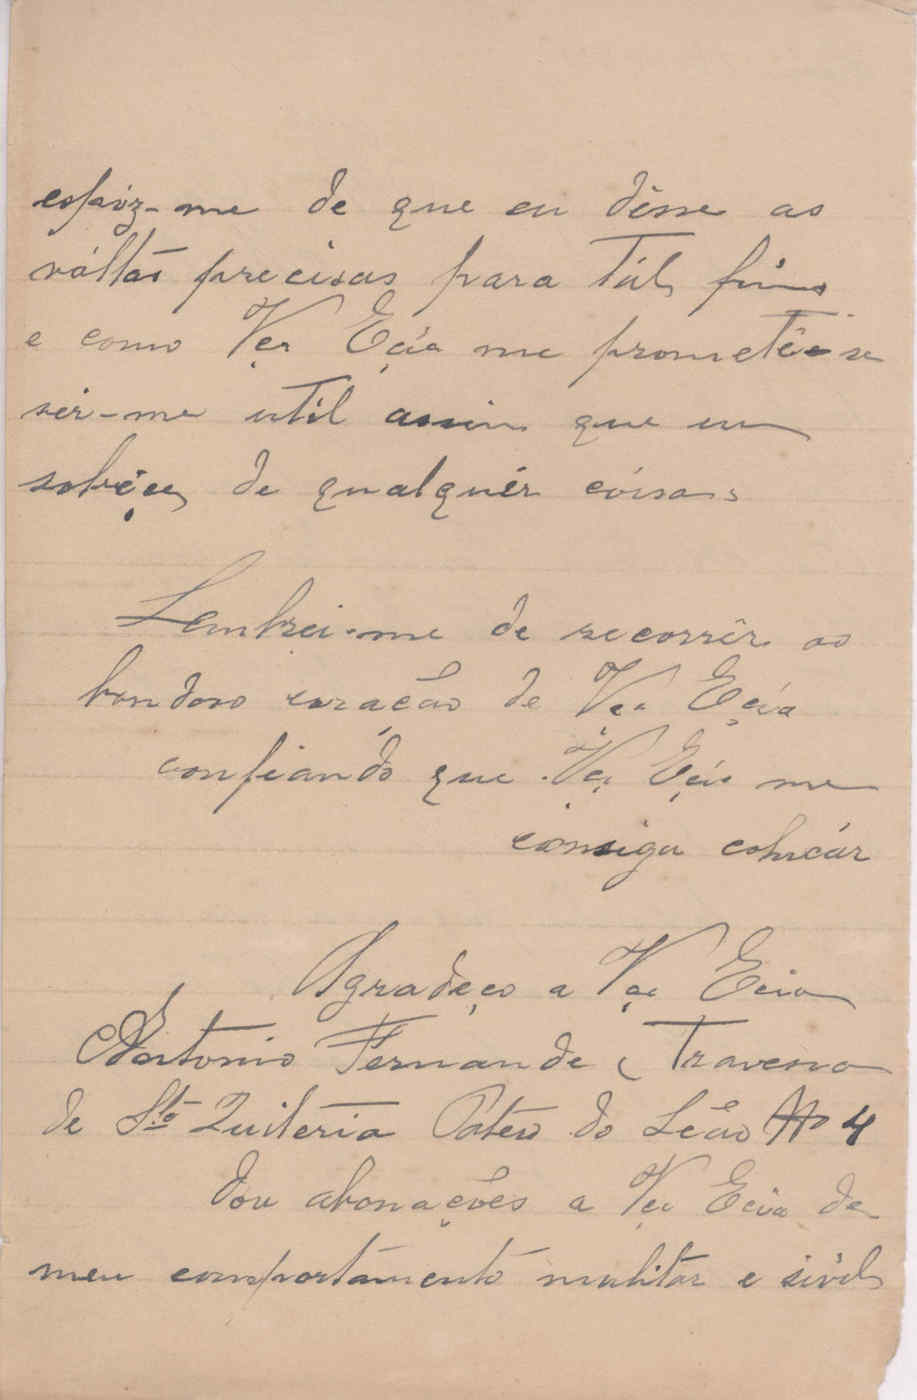 espôz-me de que eu désse as
vóltas precisas para tál fim
e como Vça Eçia me prometêo-se
sêr-me util assim que eu
sobéçe de qualquér cóisa
Lembrei-me de recorrêr ao
bondoso curação de Vça Eçia
confiando que Vça Eçia me
consiga colucár
Agradeço a Vça Ecia
Antonio Fernande Travessa
de Stª Quiteria Pateo do Lêão Nº 4
dou abonações a Vça Ecia de
meu comportamento mulitar e sivil